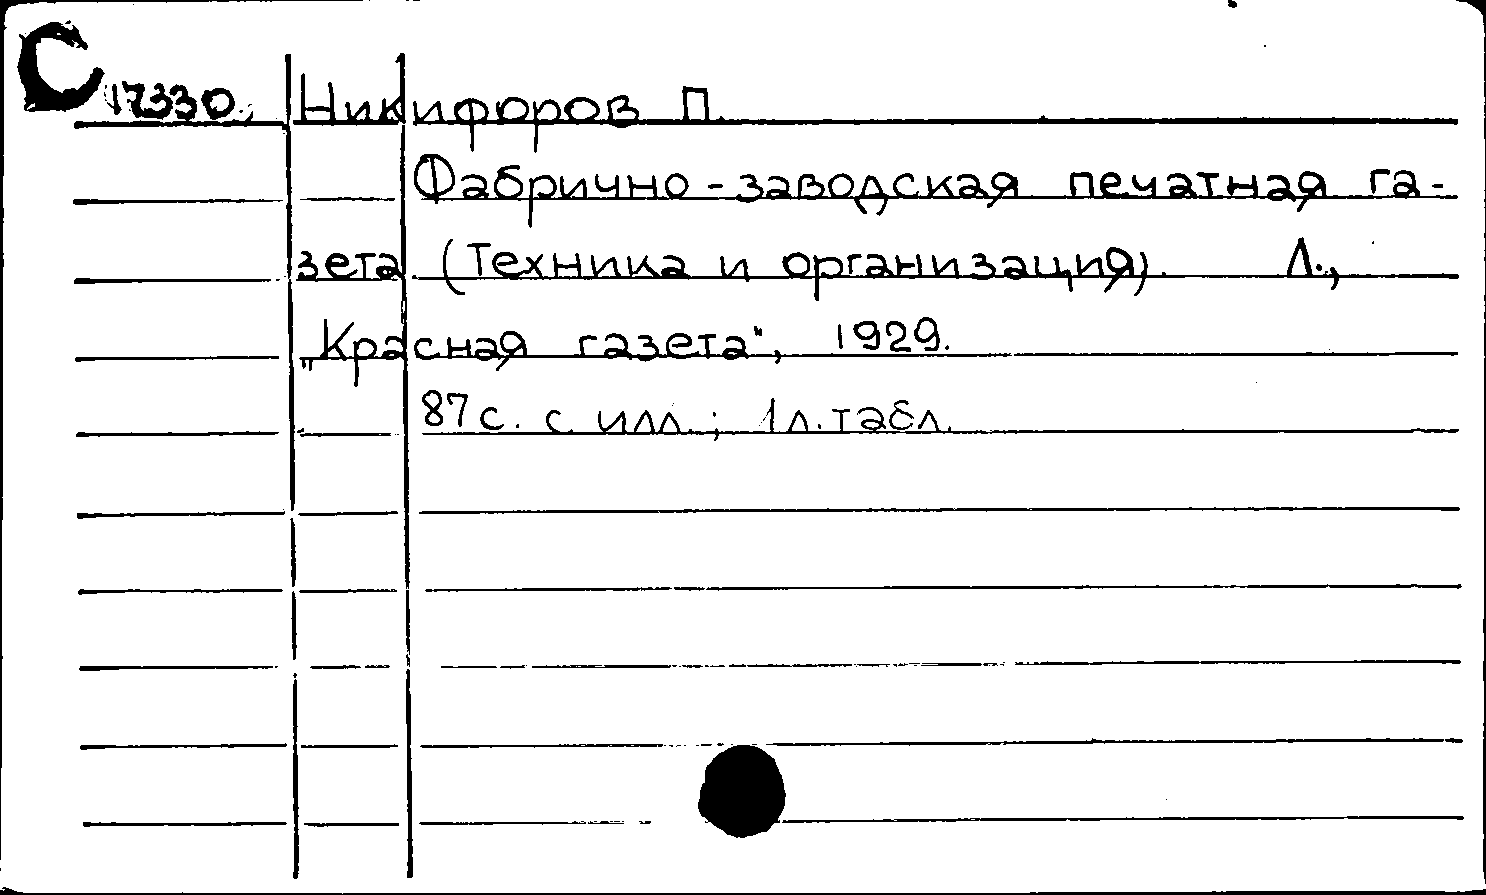 С 17330. Никифоров П.
Фабрично-заводская печатная га-
зета. (Техника и организация). Л.,
„Красная газета", 1929.
87 с. с илл.; 1 л. табл.